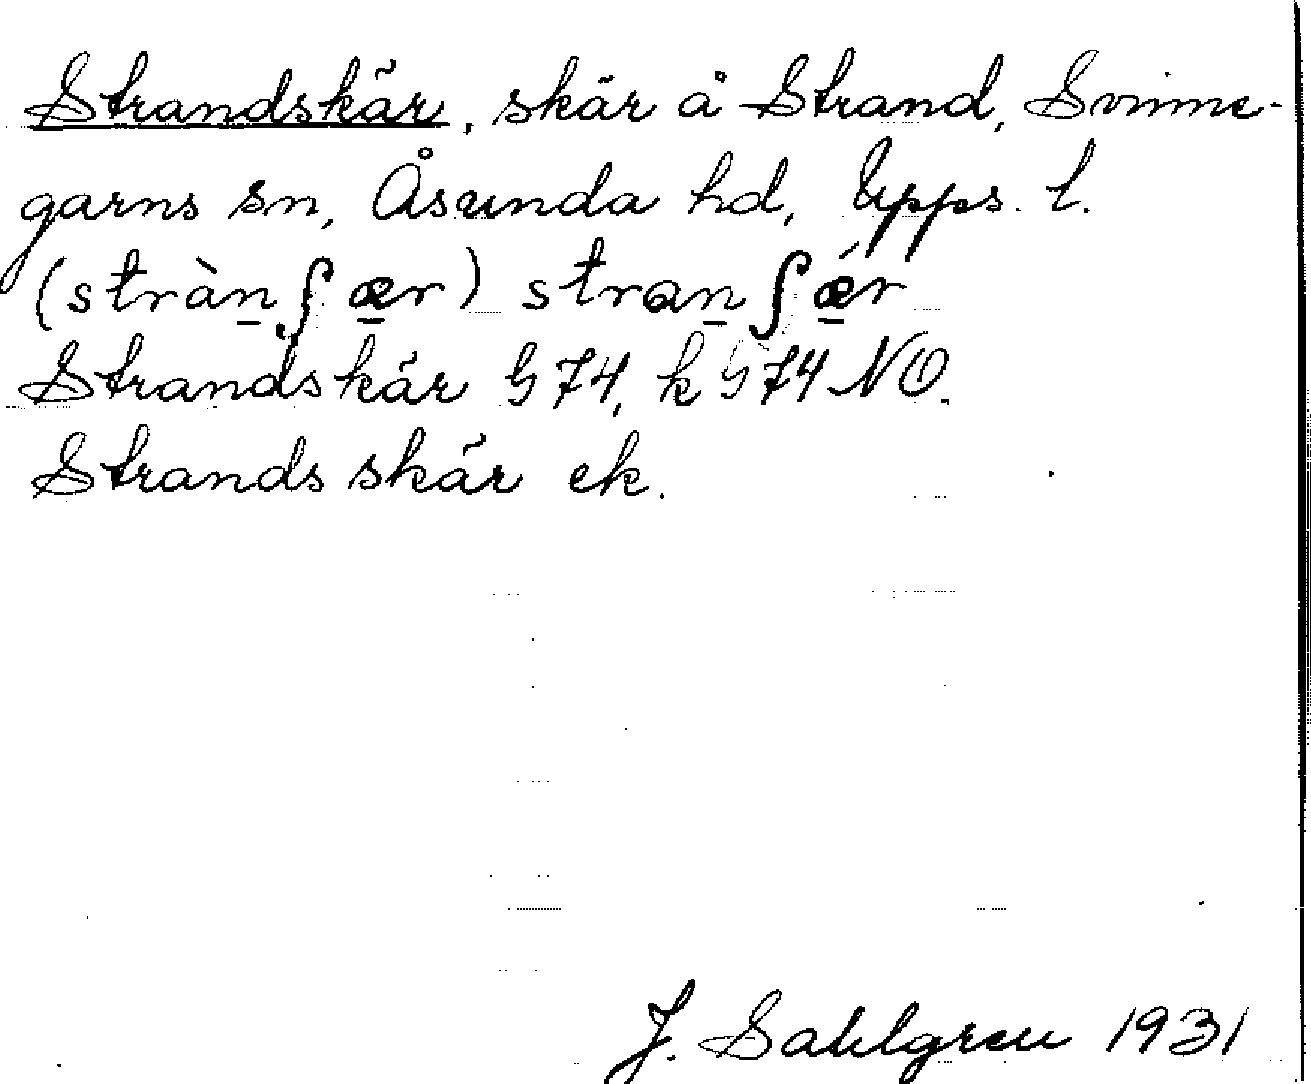 Strandskär, skär å Strand, Svinne-
garns sn, Åsunda hd, Upps. l.
(stràn̲ʃæ̲r) stran̲ʃǽ̲r
Strandskär G 74, k G 74 NO.
Strands skär ek.
J. Sahlgren 1931